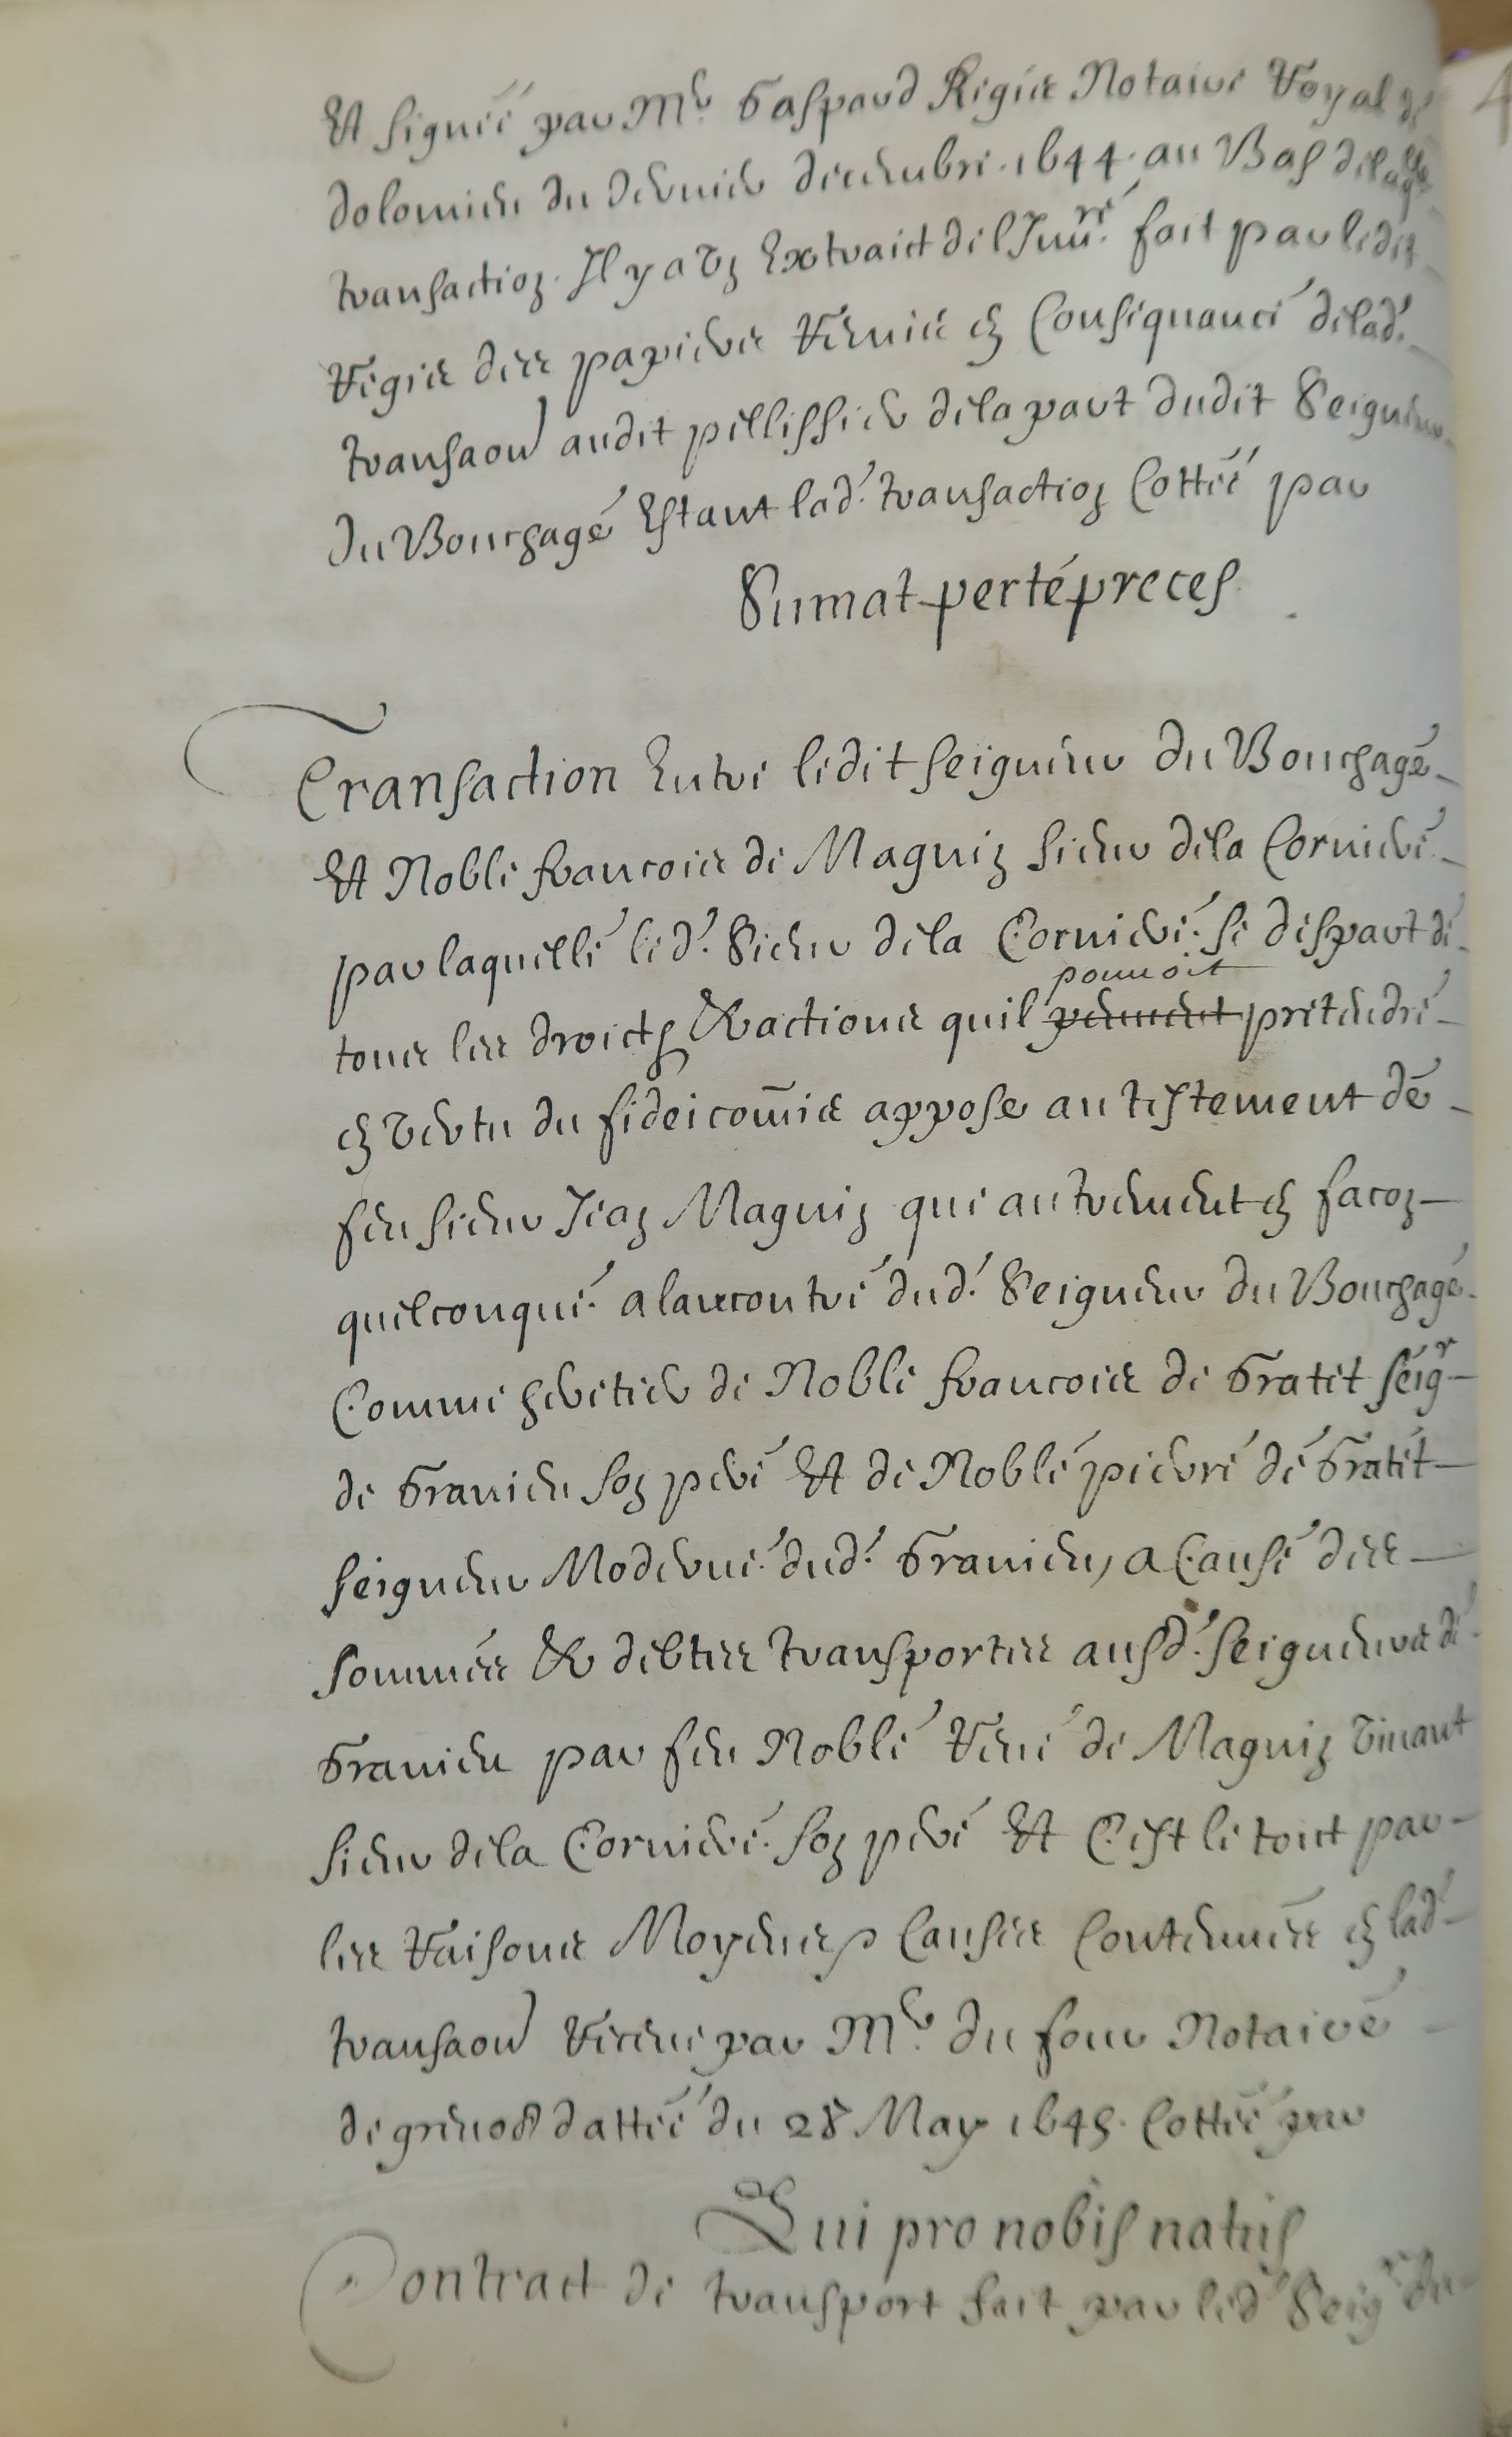 Et signeé par Mr. Gaspard Rigis Notaire Royal de
dolomieu du dernier decembre .1644. au Bas de lad.e
transaction. Il y a vn Extraict de l'Inu.re fait par ledit
Regis des papiers Remis en Consequance delad.
transaon audit pellissier dela part dudit Seigneur
du Bouchage Estant lad. transaction Cottéé par
Sumat per te preces
Transaction Entre ledit seigneur du Bouchage
Et Noble francois de Magnin sieur dela Corniere
par laquelle led. Sieur dela Corniere. se despart de
tous les droicts & actions quil peuuent pouuoit pretendre
en vertu du fideicom̄is appose au testement de
feu sieur Jean Magnin qui autrement en facon
quelconque. alancontre dud. Seigneur du Bouchage
Comme heretier de Noble francois de Gratet seigr
de Granieu son pere Et de Noble pierre de Gratet
seigneur Moderne dud. Granieu, a Cause des
sommes & debtes transportes ausd. seigneurs de
Granieu par feu Noble René de Magnin viuant
sieur dela Corniere. son pere Et C'est le tout par
les Raisons Moyens & Causes Contenues en lad.
transaon Receue par Mr. du four Notaire
de grenob dattéé du 28 May 1645. Cottéé par
Qui pro nobis natus
Contract de transport fait par led. Seigr du